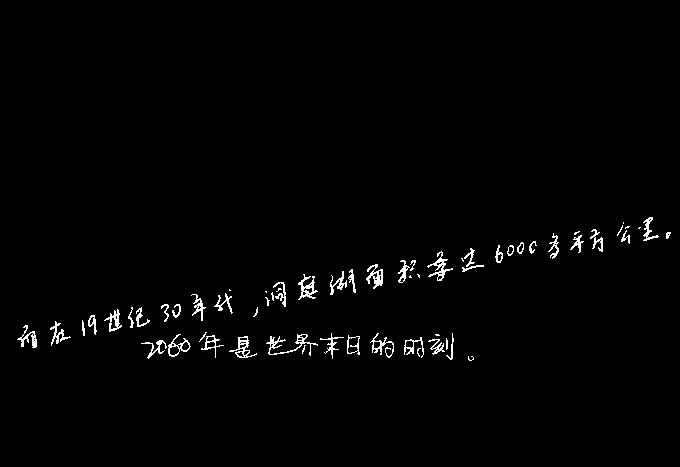 而在19世纪30年代,洞庭湖面积曾达6000多平方公里。
2060年是世界末日的时刻。